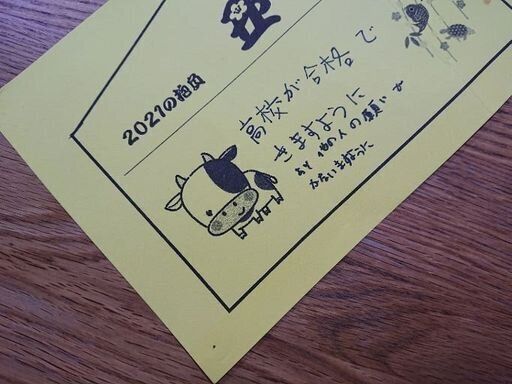 2021の抱負
高校が合格で
きますように
あと他の人の願いが
かないますように